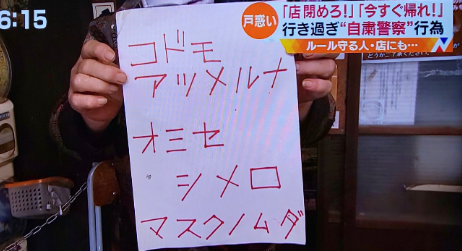 6:15
戸惑い
「店閉めろ!」「今すぐ帰れ!」
行き過ぎ“自粛警察”行為
ルール守る人・店にも…
コドモ
アツメルナ
オミセ
シメロ
マスクノムダ